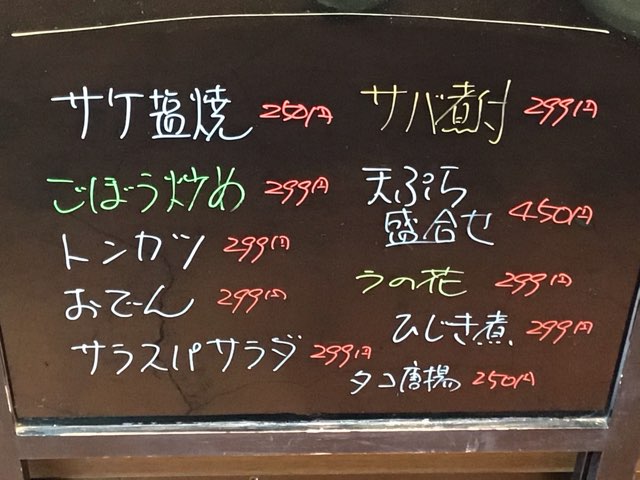 サケ塩焼 250円
ごぼう炒め 299円
トンカツ 299円
おでーん 299円
サラスパサラダ 299円
サバ煮付 299円
天ぷら
盛合せ 450円
うの花 299円
ひじき煮 299円
タコ唐揚 250円